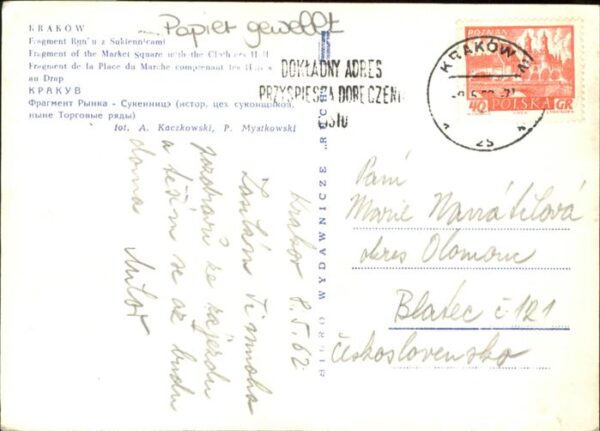 Papier gewellt
KRAKÓW
Fragment Rynku z Sukiennicami
Fragment of the Market Square with the Clothiers Hall
Fragment de la Place du Marche comprenant les Halles
au Drap
КРАКУВ
Фрагмент Рынка - Сукенницэ (истор. цех суконщиков,
ныне Торговые ряды)
fot. A. Kaczkowski, P. Mystkowski
DOKŁADNY ADRES
PRZYSPIESZA DORĘCZENI
LISTU
KRAKÓW
25
POZNAŃ
40 POLSKA GR
BIURO WYDAWNICZE „RUCH"
Krakov 8.5.62
Zasílám Ti mnoho
pozdravů ze zájezdu
a těším se až budu
doma
Paní
Marie Navrátilová
okres Olomouc
Blatec č 121
Československo